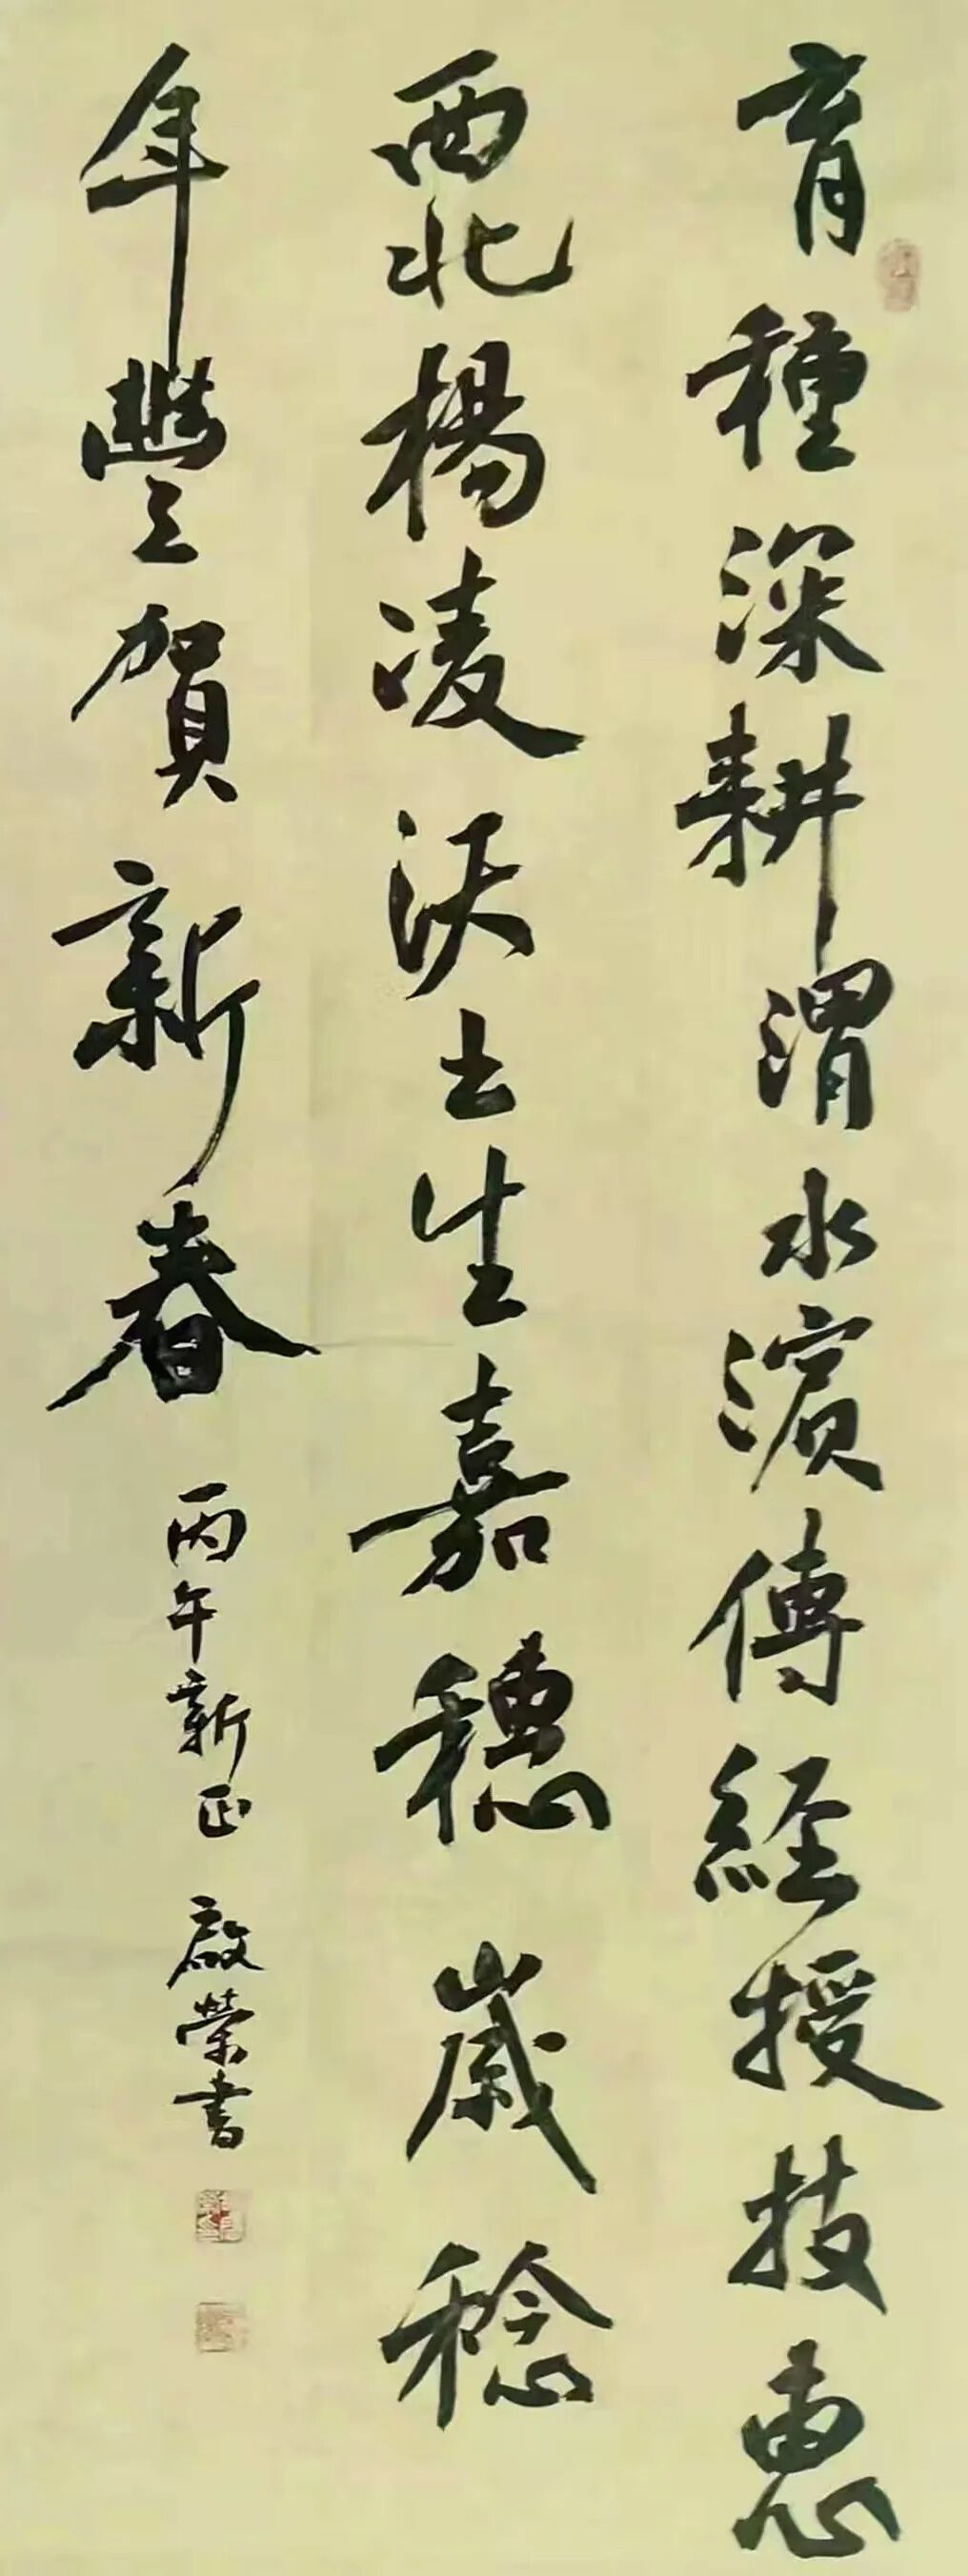 育種深耕渭水濵傳經授技惠
西北楊凌沃土生嘉穗歲稔
年豐賀新春
丙午新正 啟榮書